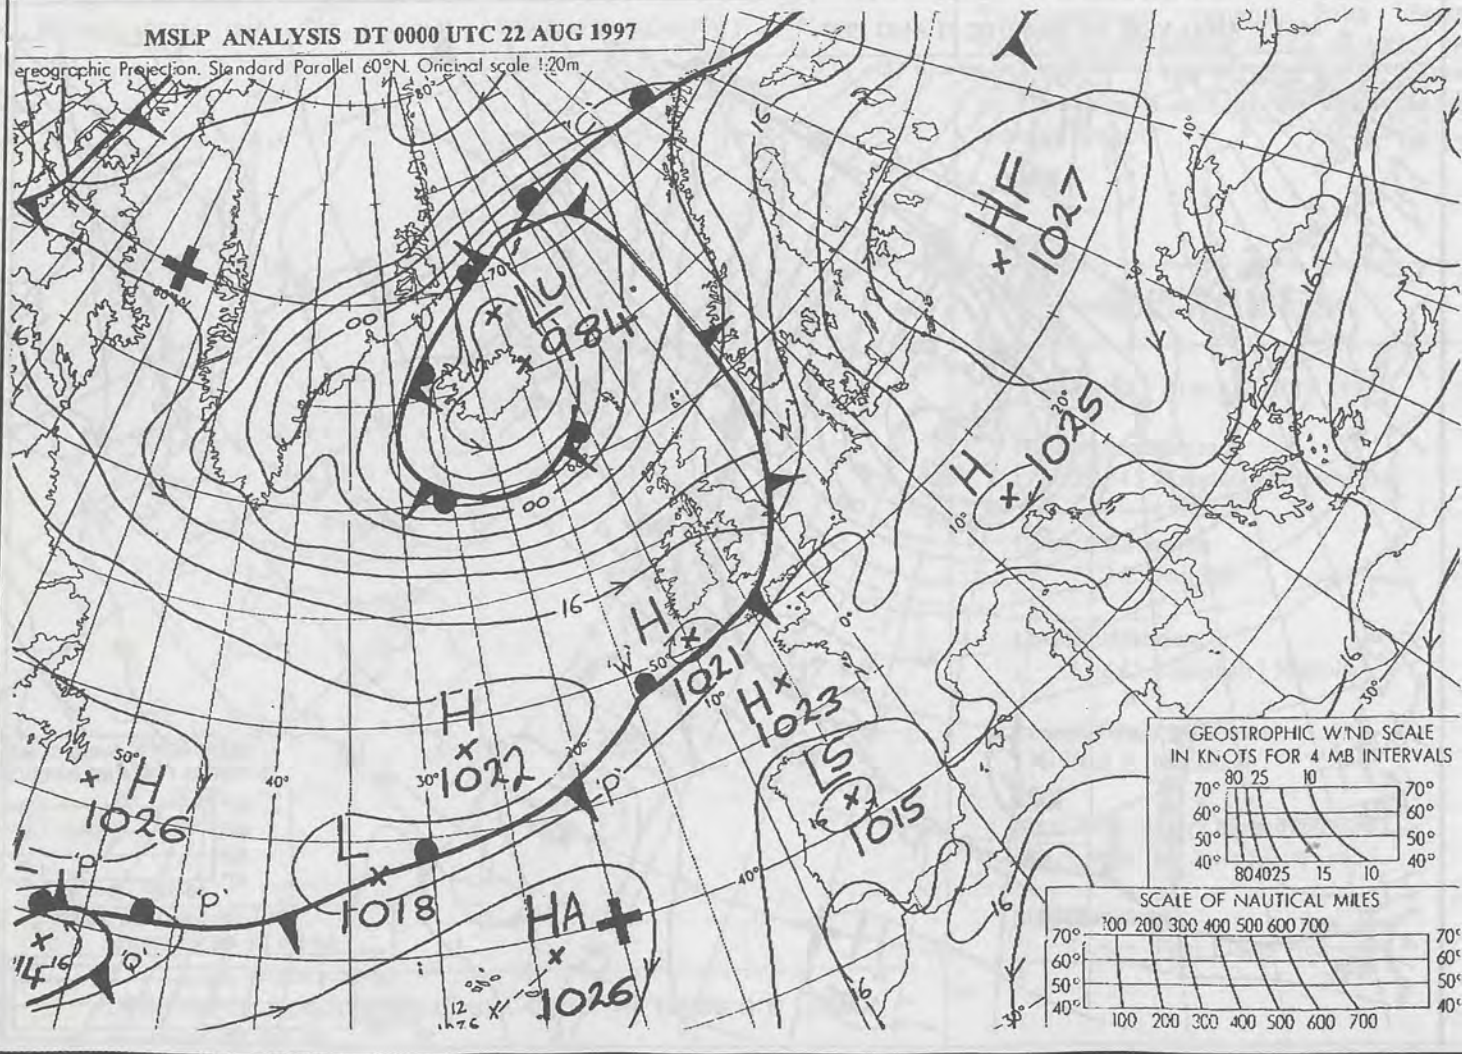 MSLP ANALYSIS DT 0000 UTC 22 AUG 1997
ereographic Projection. Standard Parallel 60°N. Original scale 1:20m
80°
16
40°
HF
1027
70
LU
984
00
16
60°
00
20°
H
1025
10°
W
0°
16
H
'W'
50
1021
10°
H
1023
H
1022
50°
H
1026
40°
30°
20°
'P'
LS
1015
40°
L
1018
'P'
'P'
'Q'
16
HA
1026
12
16
16
16
30°
GEOSTROPHIC WIND SCALE
IN KNOTS FOR 4 MB INTERVALS
80 25 10
70° 70°
60° 60°
50° 50°
40° 40°
80 40 25 15 10
SCALE OF NAUTICAL MILES
100 200 300 400 500 600 700
70° 70°
60° 60°
50° 50°
40° 40°
100 200 300 400 500 600 700